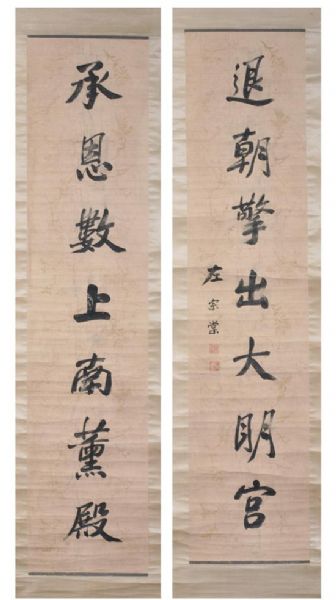 退朝擎出大明宫
左宗棠
承恩數上南薰殿